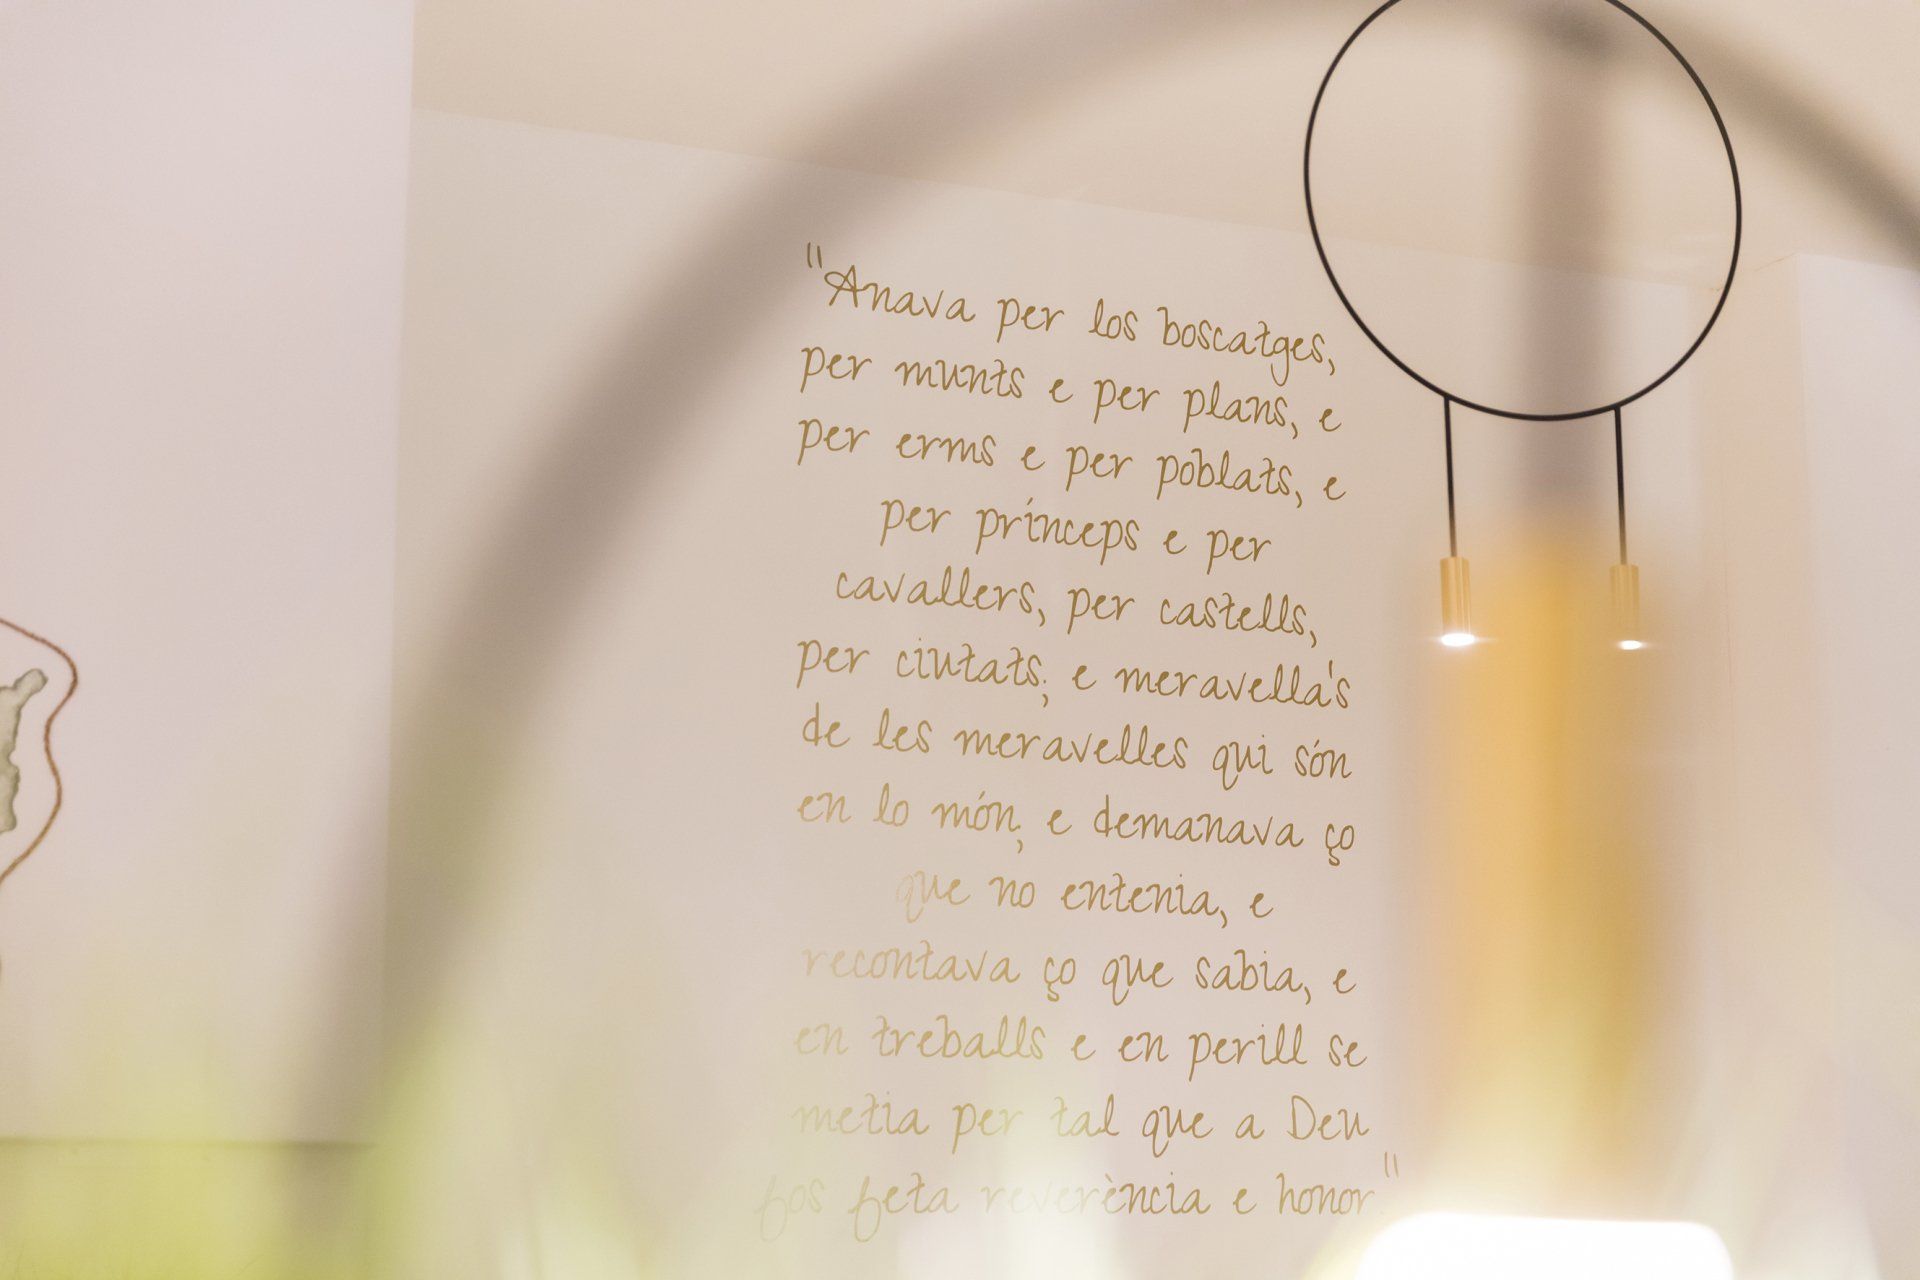 "Anava per los boscatges,
per munts e per plans, e
per erms e per poblats, e
per prínceps e per
cavallers, per castells,
per ciutats; e meravella's
de les meravelles qui són
en lo món; e demanava ço
que no entenia, e
recontava ço que sabia, e
en treballs e en perill se
metia per tal que a Deu
fos feta reverència e honor."